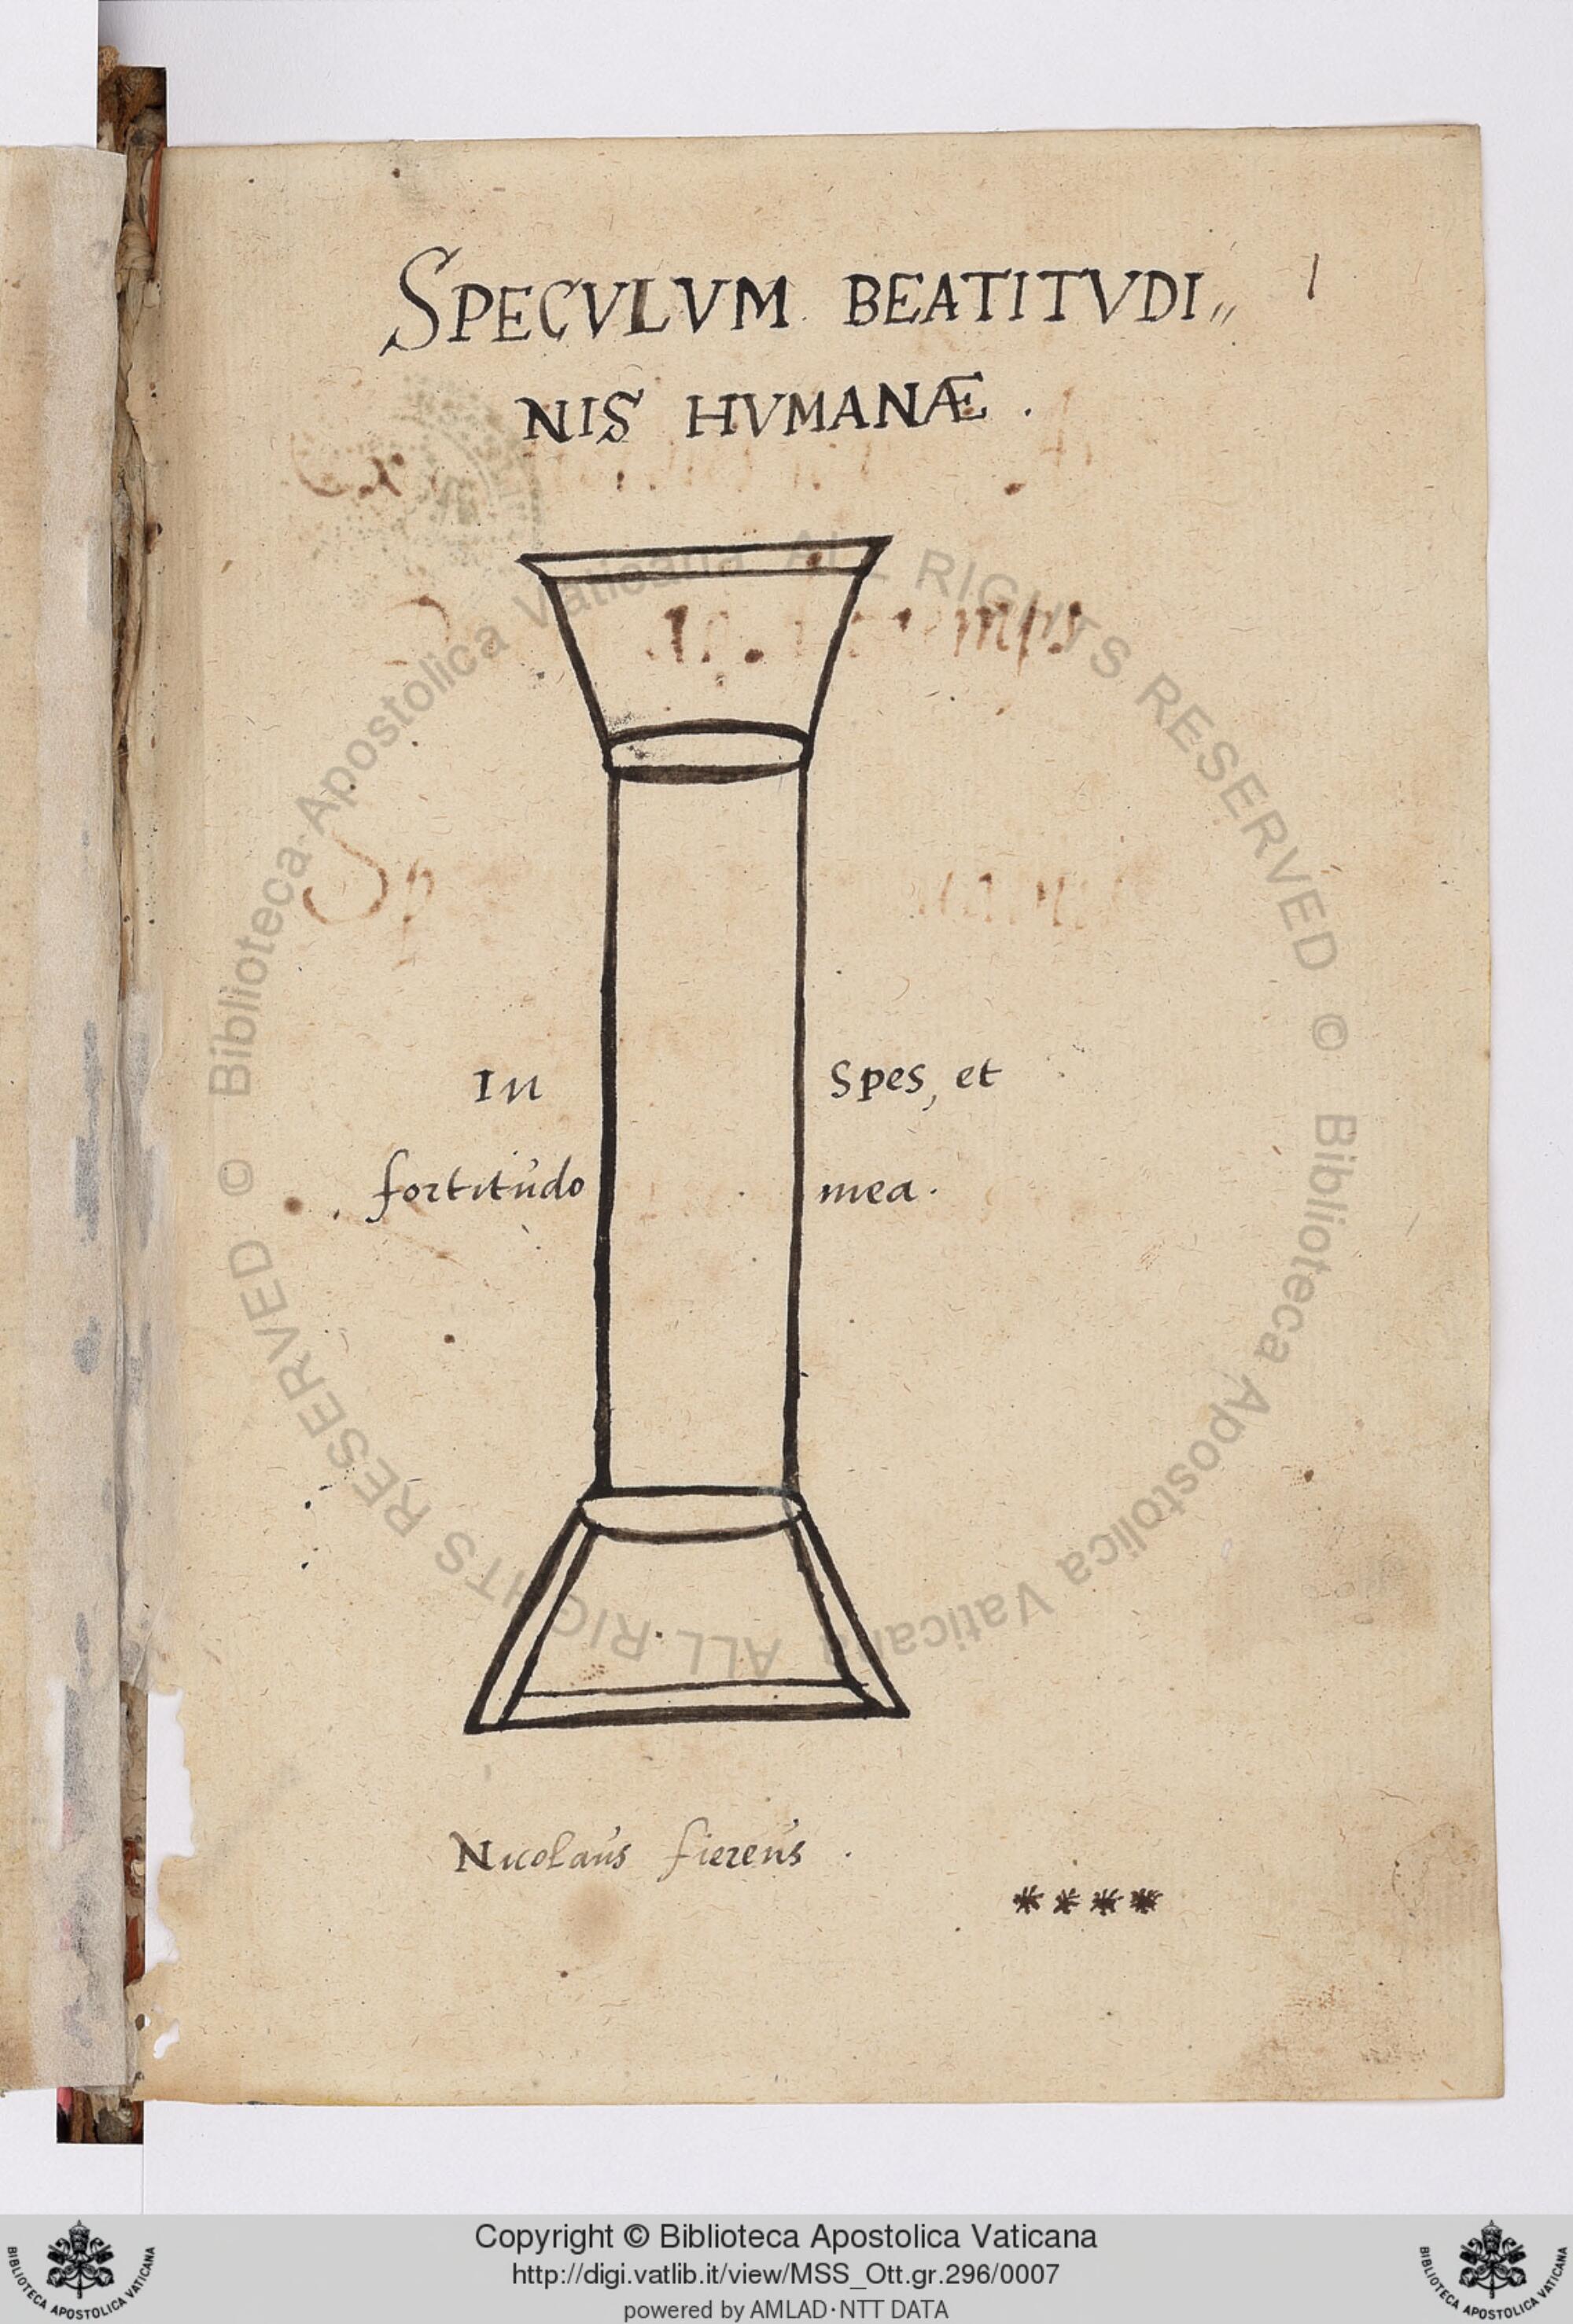 SPECVLVM BEATITVDI〃 1
NIS HVMANÆ .
In Spes, et
fortitudo mea.
Nicolaus fiereus .
****
© Biblioteca Apostolica Vaticana ALL RIGHTS RESERVED © Biblioteca Apostolica Vaticana ALL RIGHTS RESERVED
Copyright © Biblioteca Apostolica Vaticana
http://digi.vatlib.it/view/MSS_Ott.gr.296/0007
powered by AMLAD·NTT DATA
BIBLIOTECA APOSTOLICA VATICANA
BIBLIOTECA APOSTOLICA VATICANA